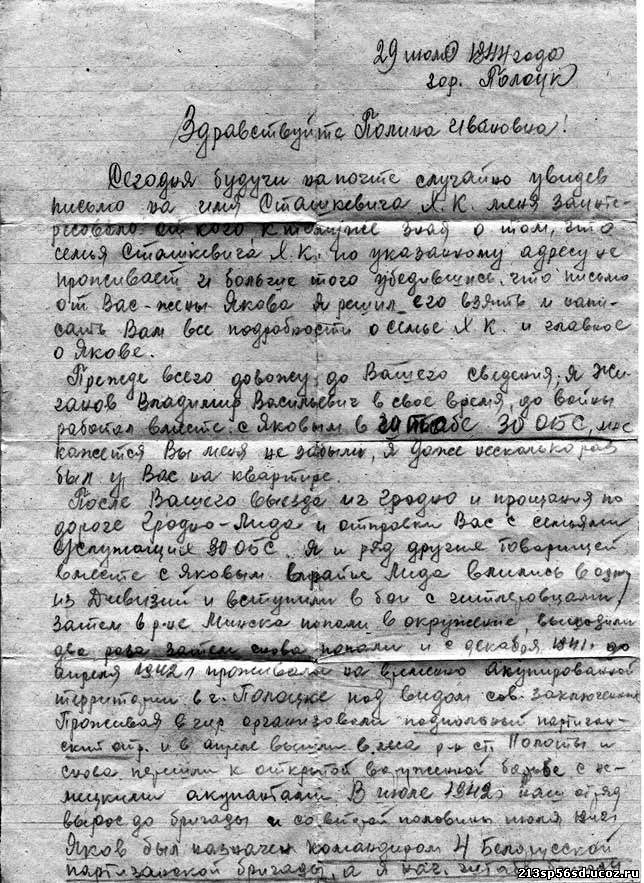 29 июля 1944 года
гор. Полоцк
Здравствуйте Полина Ивановна!
Сегодня будучи на почте случайно увидев
письмо на имя Сташкевича Я.К. меня заинте-
ресовало от кого к тому же зная о том, что
семья Сташкевича Я.К. по указанному адресу не
проживает и больше того убедившись, что письмо
от Вас - жены Якова я решил его взять и напи-
сать Вам все подробности о семье Я К. и главное
о Якове.
Прежде всего довожу до Вашего сведения, я Жи-
ганов Владимир Васильевич в свое время, до войны
работал вместе с Яковым в штабе 30 ОБС, мне
кажется Вы меня не забыли, я даже несколько раз
был у Вас на квартире.
После Вашего выезда из Гродно и прощания по
дороге Гродно-Лида и отправки Вас с семьями
служащих 30 ОБС. Я и ряд других товарищей
вместе с Яковым в районе Лида влились в одну
из Дивизий и вступили в бои с гитлеровцами,
затем в р-не Минска попали в окружение, выходили
два раза затем снова попали и с декабря 1941 г. до
апреля 1942 г проживали на временно акупированной
территории в г. Полоцке под видом сов. заключенных
Проживая в гор организовали подпольный партизан-
ский отр. и в апреле вышли в леса р-н ст. Полоты и
снова перешли к открытой вооруженной борьбе с не-
мецкими акупантами. В июле 1942 г наш отряд
вырос до бригады и со второй половины июля м-ца
Яков был назначен командиром 4 Белорусской
партизанской бригады, а я нач. штаба бригады
213sp56sd.ucoz.ru